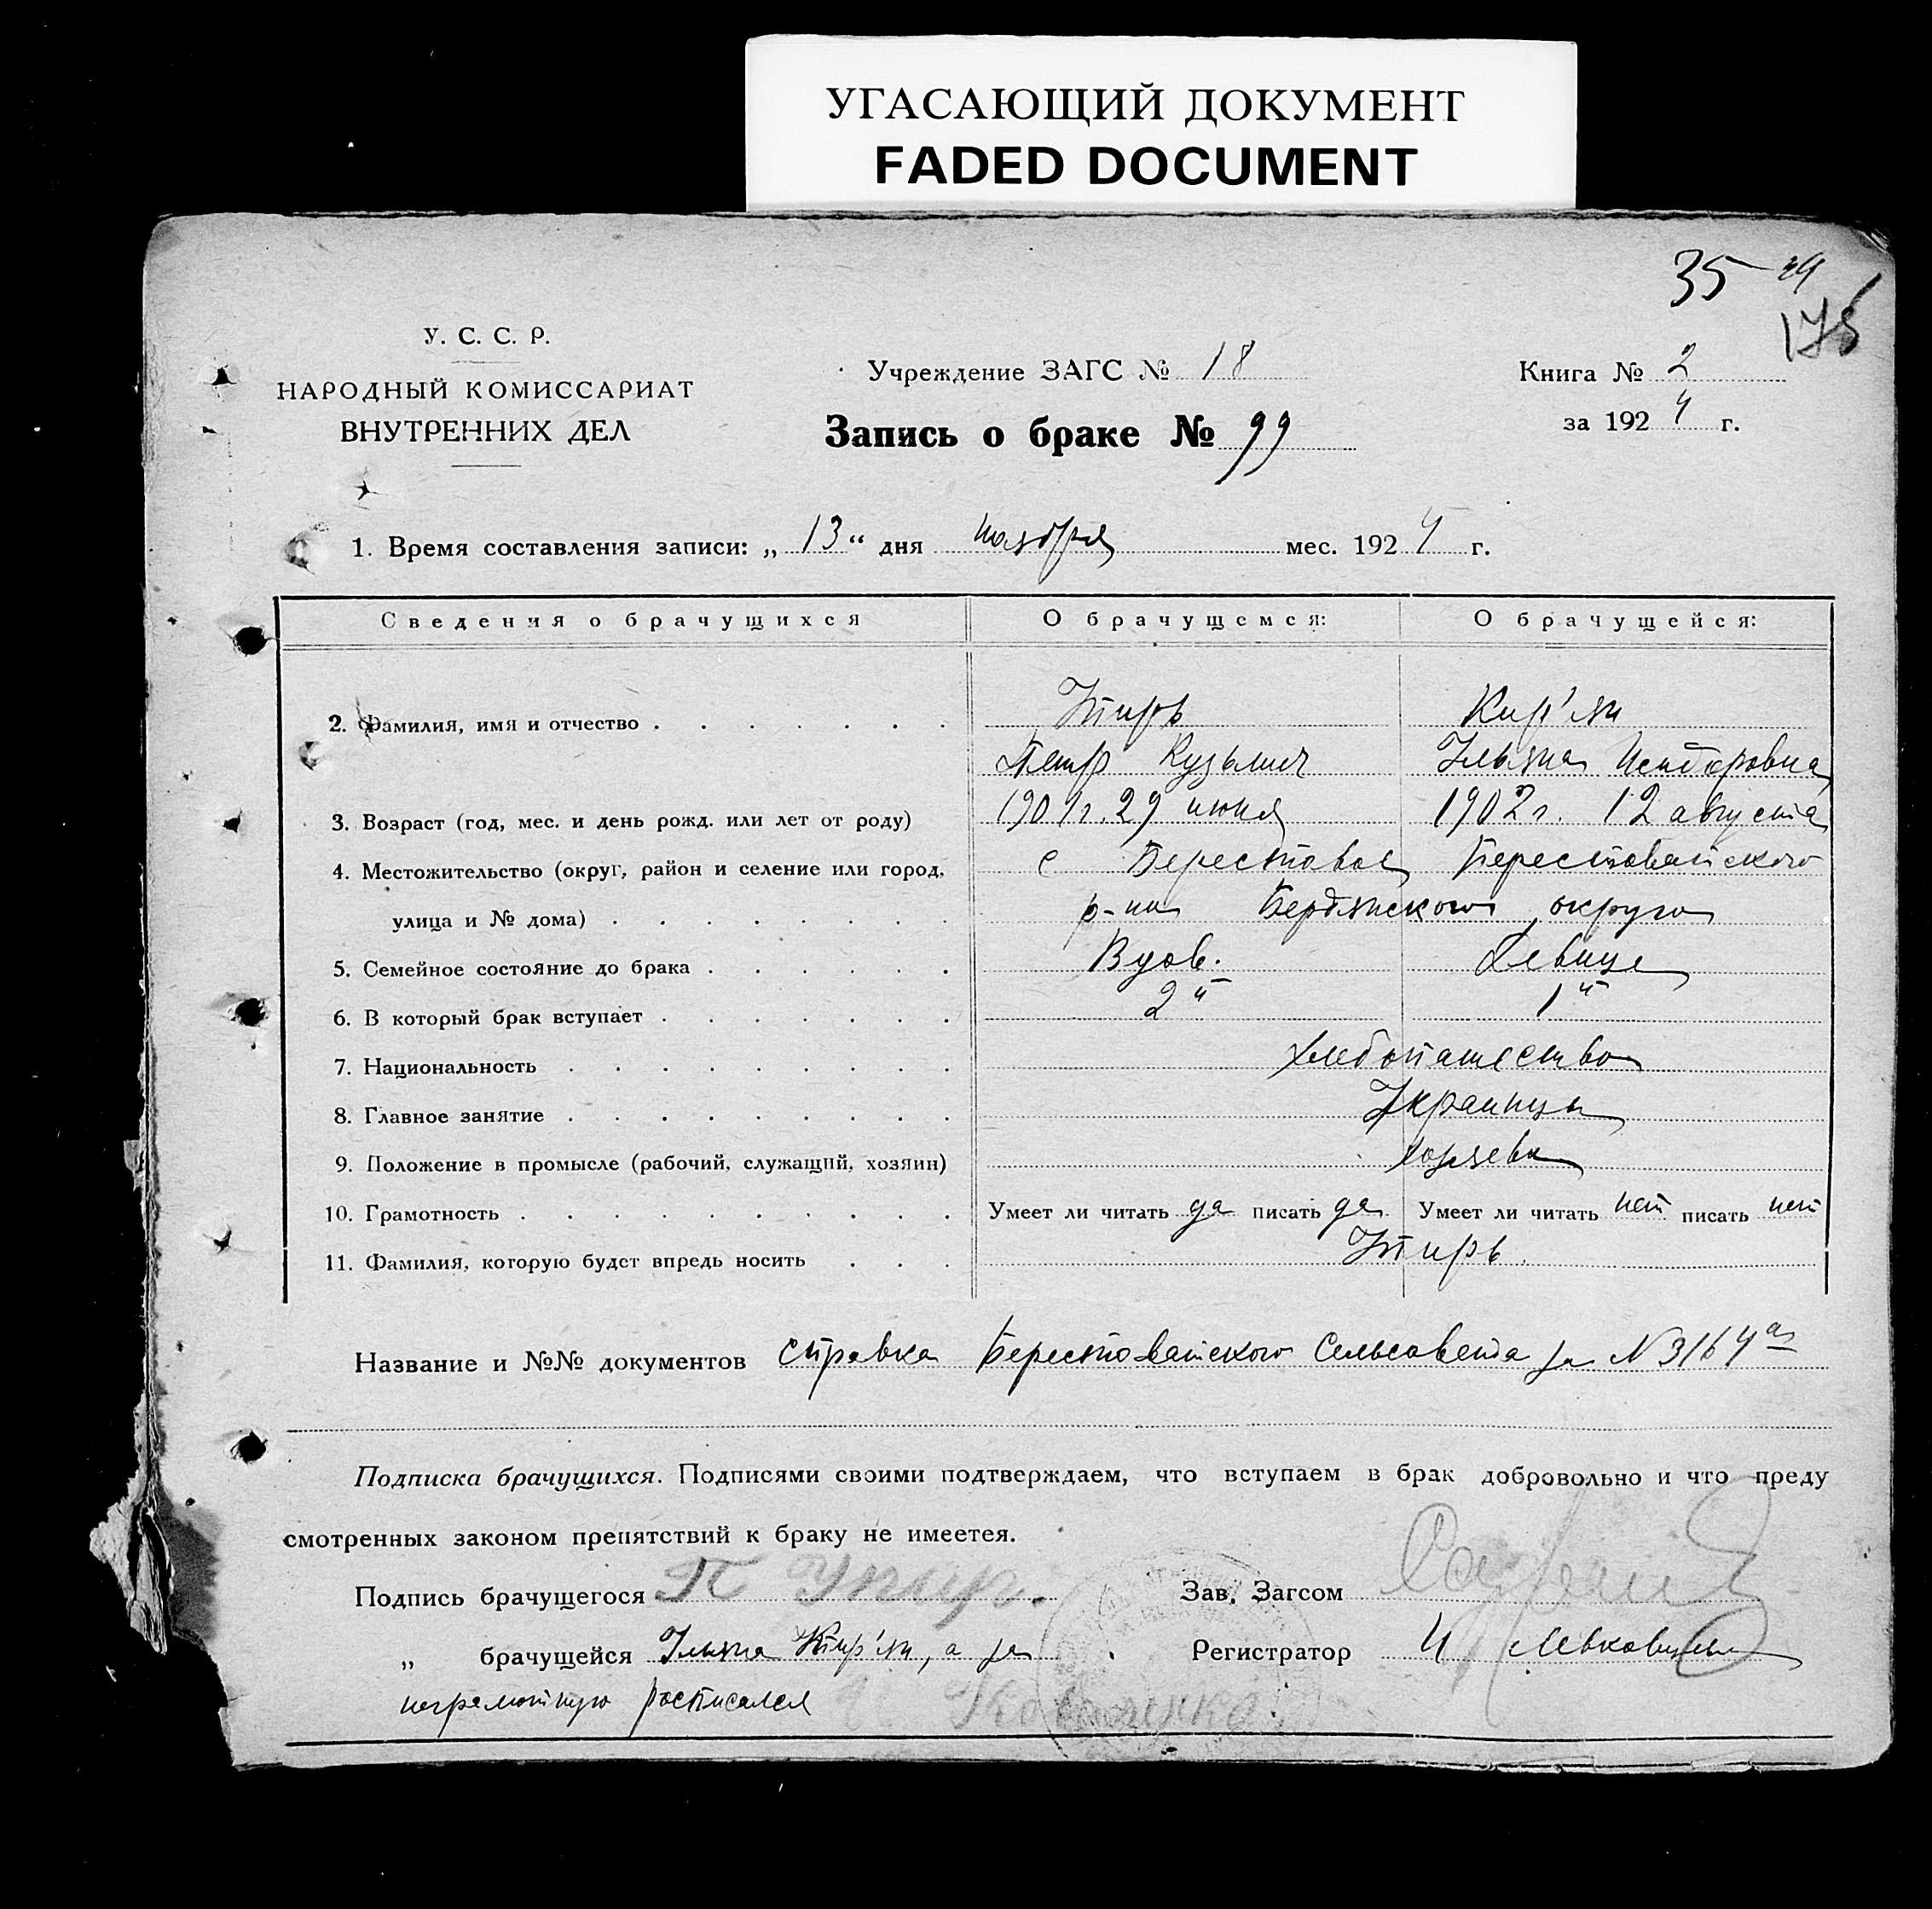 УГАСАЮЩИЙ ДОКУМЕНТ
FADED DOCUMENT
35 29
175
У. С. С. Р.
НАРОДНЫЙ КОМИССАРИАТ
ВНУТРЕННИХ ДЕЛ
Учреждение ЗАГС № 18
Книга № 2
Запись о браке № 99
за 1924 г.
1. Время составления записи: „ 13 “ дня ноября мес. 1924 г.
Сведения о брачущихся О брачущемся: О брачущейся:
2. Фамилия, имя и отчество Упирь Кир'ян
Петр Кузьмич Ульяна Исидоровна
3. Возраст (год, мес. и день рожд. или лет от роду) 1901г. 29 июня 1902г. 12 августа
4. Местожительство (округ, район и селение или город, с Берестовое Берестоватского
улица и № дома) р-на Бердянского округа
5. Семейное состояние до брака Вдов. Девица
6. В который брак вступает 2й 1й
7. Национальность Хлебопашество
8. Главное занятие Украинцы
9. Положение в промысле (рабочий, служащий, хозяин) хозяева
10. Грамотность Умеет ли читать да писать да Умеет ли читать нет писать нет
11. Фамилия, которую будет впредь носить Упирь.
Название и №№ документов справка Берестоватского Сельсовета за № 3164а
Подписка брачущихся. Подписями своими подтверждаем, что вступаем в брак добровольно и что преду
смотренных законом препятствий к браку не имеетея.
Подпись брачущегося П Упир. Зав. Загсом
„ брачущейся Ульяна Кир'ян, а за Регистратор И
неграмотную росписался